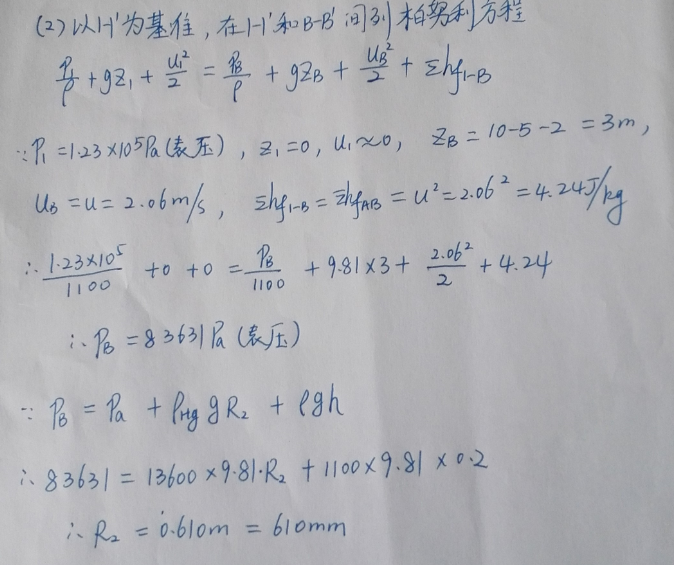 (2) 以1-1'为基准,在1-1'和B-B'间列柏努利方程
P₁/ρ + gZ₁ + u₁²/2 = P_B/ρ + gZ_B + u_B²/2 + Σhf₁₋B
∵ P₁ = 1.23×10⁵Pa(表压), z₁=0, u₁≈0, Z_B = 10-5-2 = 3m,
u_B = u = 2.06m/s, Σhf₁₋B = Σhf_AB = u² = 2.06² = 4.24J/kg
∴ 1.23×10⁵/1100 + 0 + 0 = P_B/1100 + 9.81×3 + 2.06²/2 + 4.24
∴ P_B = 83631Pa(表压)
∵ P_B = Pa + ρHg g R₂ + ρgh
∴ 83631 = 13600×9.81·R₂ + 1100×9.81×0.2
∴ R₂ = 0.610m = 610mm